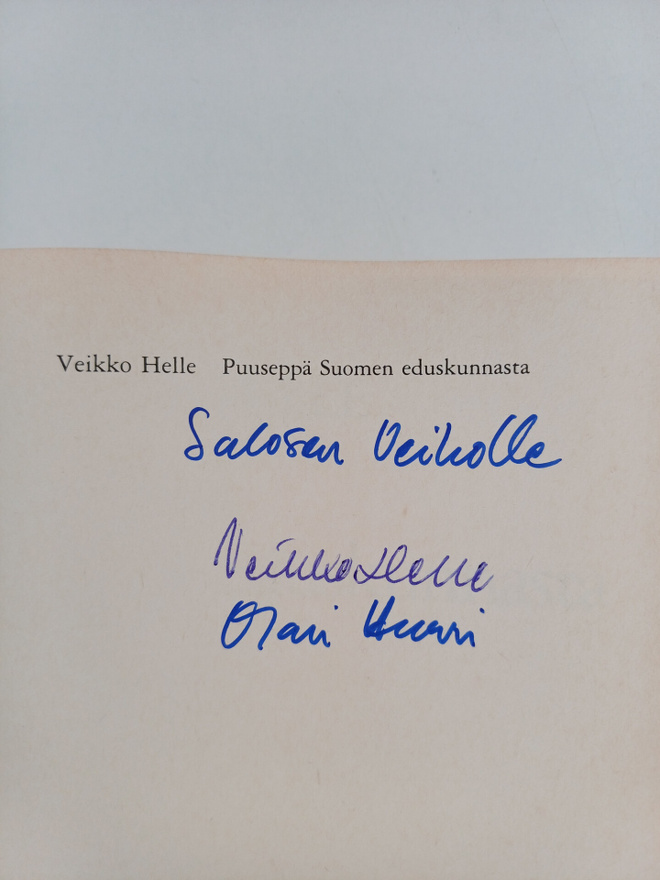 Veikko Helle Puuseppä Suomen eduskunnasta
Salosen Veikolle
Veikko Helle
Olavi Hurri